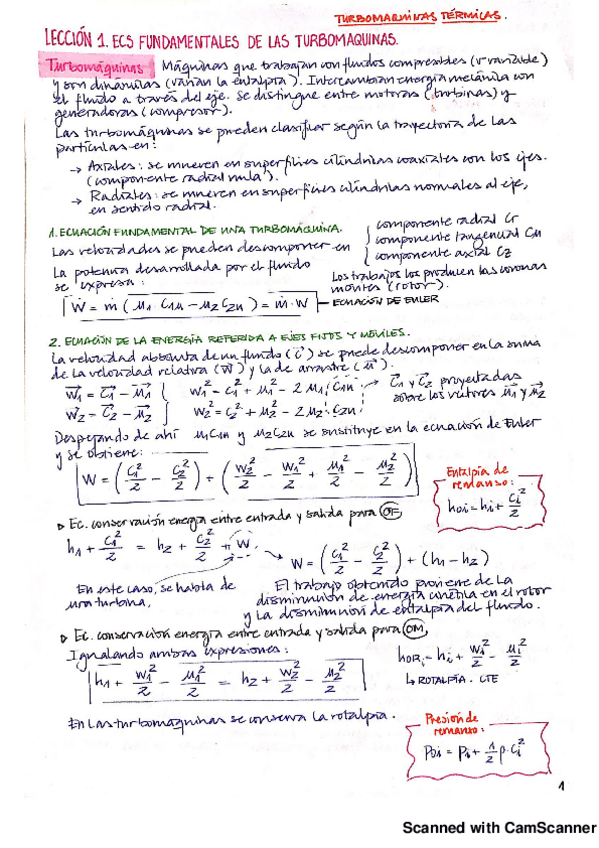 TURBOMAQUINAS TÉRMICAS.
LECCIÓN 1. ECS FUNDAMENTALES DE LAS TURBOMAQUINAS.
Turbomáquinas Máquinas que trabajan con fluidos compresibles (v variable)
y son dinámicas (varían la entalpía). Intercambian energía mecánica con
el fluido a través del eje. Se distingue entre motoras (turbinas) y
generadoras (compresor).
Las turbomáquinas se pueden clasificar según la trayectoria de las
partículas en:
→ Axiales: se mueven en superficies cilíndricas coaxiales con los ejes.
(componente radial nula).
→ Radiales: se mueven en superficies cilíndricas normales al eje,
en sentido radial.
1. ECUACIÓN FUNDAMENTAL DE UNA TURBOMÁQUINA.
Las velocidades se pueden descomponer en { componente radial Cr
componente tangencial Cu
componente axial Cz
La potencia desarrollada por el fluido
se expresa:
Los trabajos los producen las coronas
móviles (rotor).
Ẇ = ṁ (μ1 C1u − μ2 C2u) = ṁ · W — ECUACIÓN DE EULER
2. ECUACIÓN DE LA ENERGÍA REFERIDA A EJES FIJOS Y MÓVILES.
La velocidad absoluta de un fluido (c⃗) se puede descomponer en la suma
de la velocidad relativa (w⃗) y la de arrastre (μ⃗).
w⃗1 = c⃗1 − μ⃗1 { w1² = c1² + μ1² − 2 μ1 · c1u → c⃗1 y c⃗2 proyectadas
w⃗2 = c⃗2 − μ⃗2 w2² = c2² + μ2² − 2 μ2 · c2u sobre los vectores μ⃗1 y μ⃗2
Despejando de ahí μ1c1u y μ2c2u se sustituye en la ecuación de Euler
y se obtiene:
W = (c1²/2 − c2²/2) + (w2²/2 − w1²/2 + μ1²/2 − μ2²/2)
Entalpía de
remanso:
hoi = hi + ci²/2
▷ Ec. conservación energía entre entrada y salida para OF
h1 + c1²/2 = h2 + c2²/2 + W → W = (c1²/2 − c2²/2) + (h1 − h2)
En este caso, se habla de
una turbina,
El trabajo obtenido proviene de la
disminución de energía cinética en el rotor
y la disminución de entalpía del fluido.
▷ Ec. conservación energía entre entrada y salida para OM,
Igualando ambas expresiones:
h1 + w1²/2 − μ1²/2 = h2 + w2²/2 − μ2²/2
hORi = hi + wi²/2 − μi²/2
↳ ROTALPÍA. CTE
En las turbomáquinas se conserva la rotalpía.
Presión de
remanso:
poi = pi + 1/2 ρ · ci²
1
Scanned with CamScanner